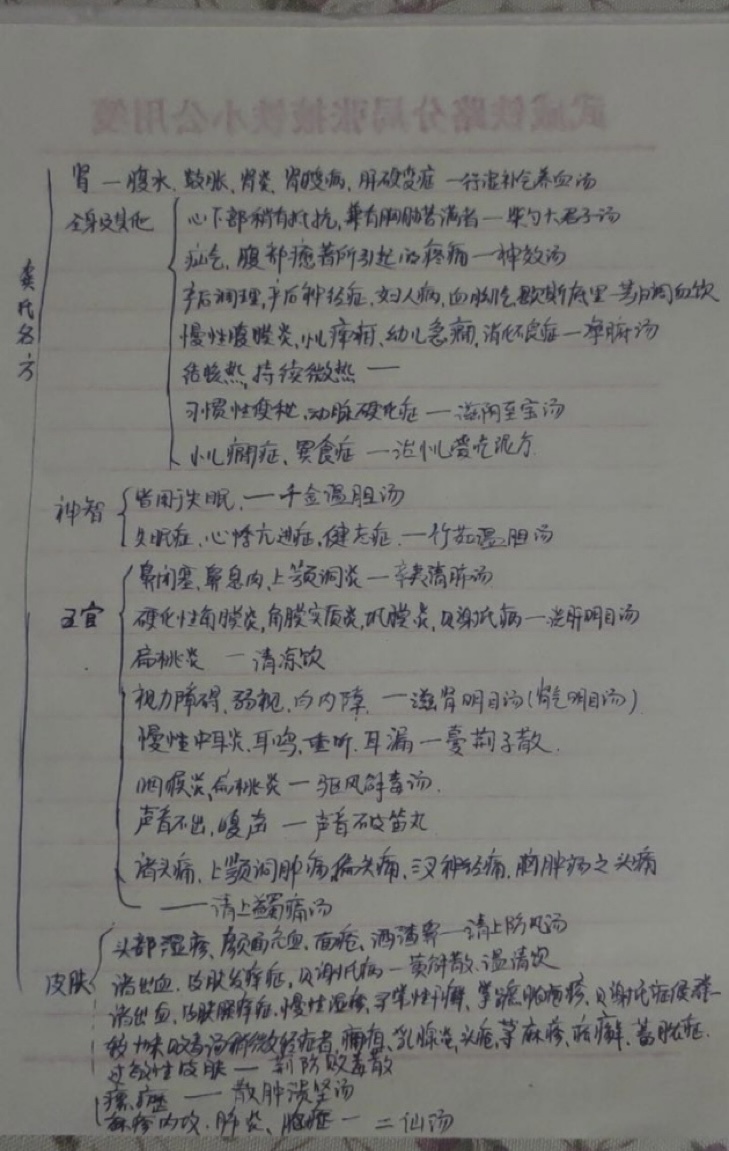 武威铁路分局张掖铁小公用笺
龚氏名方
肾 — 腹水、鼓胀、肾炎、肾变病、肝硬变症 — 行湿补气养血汤
全身及其他
心下部稍有抵抗,兼有胸胁苦满者 — 柴芍六君子汤
疝气,腹部瘀着所引起的疼痛 — 神效汤
产后调理,产后神经症,妇人病,血脚气,歇斯底里 — 芎归调血饮
慢性腹膜炎,小儿痞癖,幼儿急痫,消化不良症 — 分消汤
结核热,持续微热 —
习惯性便秘,动脉硬化症 — 滋阴至宝汤
小儿癇症、异食症 — 治小儿爱吃泥方
神智
皆用于失眠, — 千金温胆汤
失眠症,心悸亢进症,健忘症 — 竹茹温胆汤
五官
鼻闭塞,鼻息肉,上颚洞炎 — 辛夷清肺汤
硬化性角膜炎,角膜实质炎,巩膜炎,贝谢氏病 — 洗肝明目汤
扁桃炎 — 清凉饮
视力障碍,弱视,白内障 — 滋肾明目汤(肾气明目汤)
慢性中耳炎,耳鸣,重听,耳漏 — 蔓荆子散
咽喉炎,扁桃炎 — 驱风解毒汤
声音不出,嗄声 — 声音不破笛丸
诸头痛,上颚洞肿痛,偏头痛,三叉神经痛,脑肿疡之头痛
— 清上蠲痛汤
皮肤
头部湿疹、颜面充血、面疱、酒渣鼻 — 清上防风汤
诸出血,皮肤瘙痒症,贝谢氏病 — 黄解散、温清饮
诸出血,皮肤瘙痒症,慢性湿疹,寻常性干癣,掌蹠脓疱疹,贝谢氏症候群 —
较十味败毒汤稍微轻症者,痈疽,乳腺炎,头疮,荨麻疹,疥癣,蓄脓症.
过敏性皮肤 — 荆防败毒散
瘰疬 — 散肿溃坚汤
麻疹内攻,肺炎、脑症 — 二仙汤